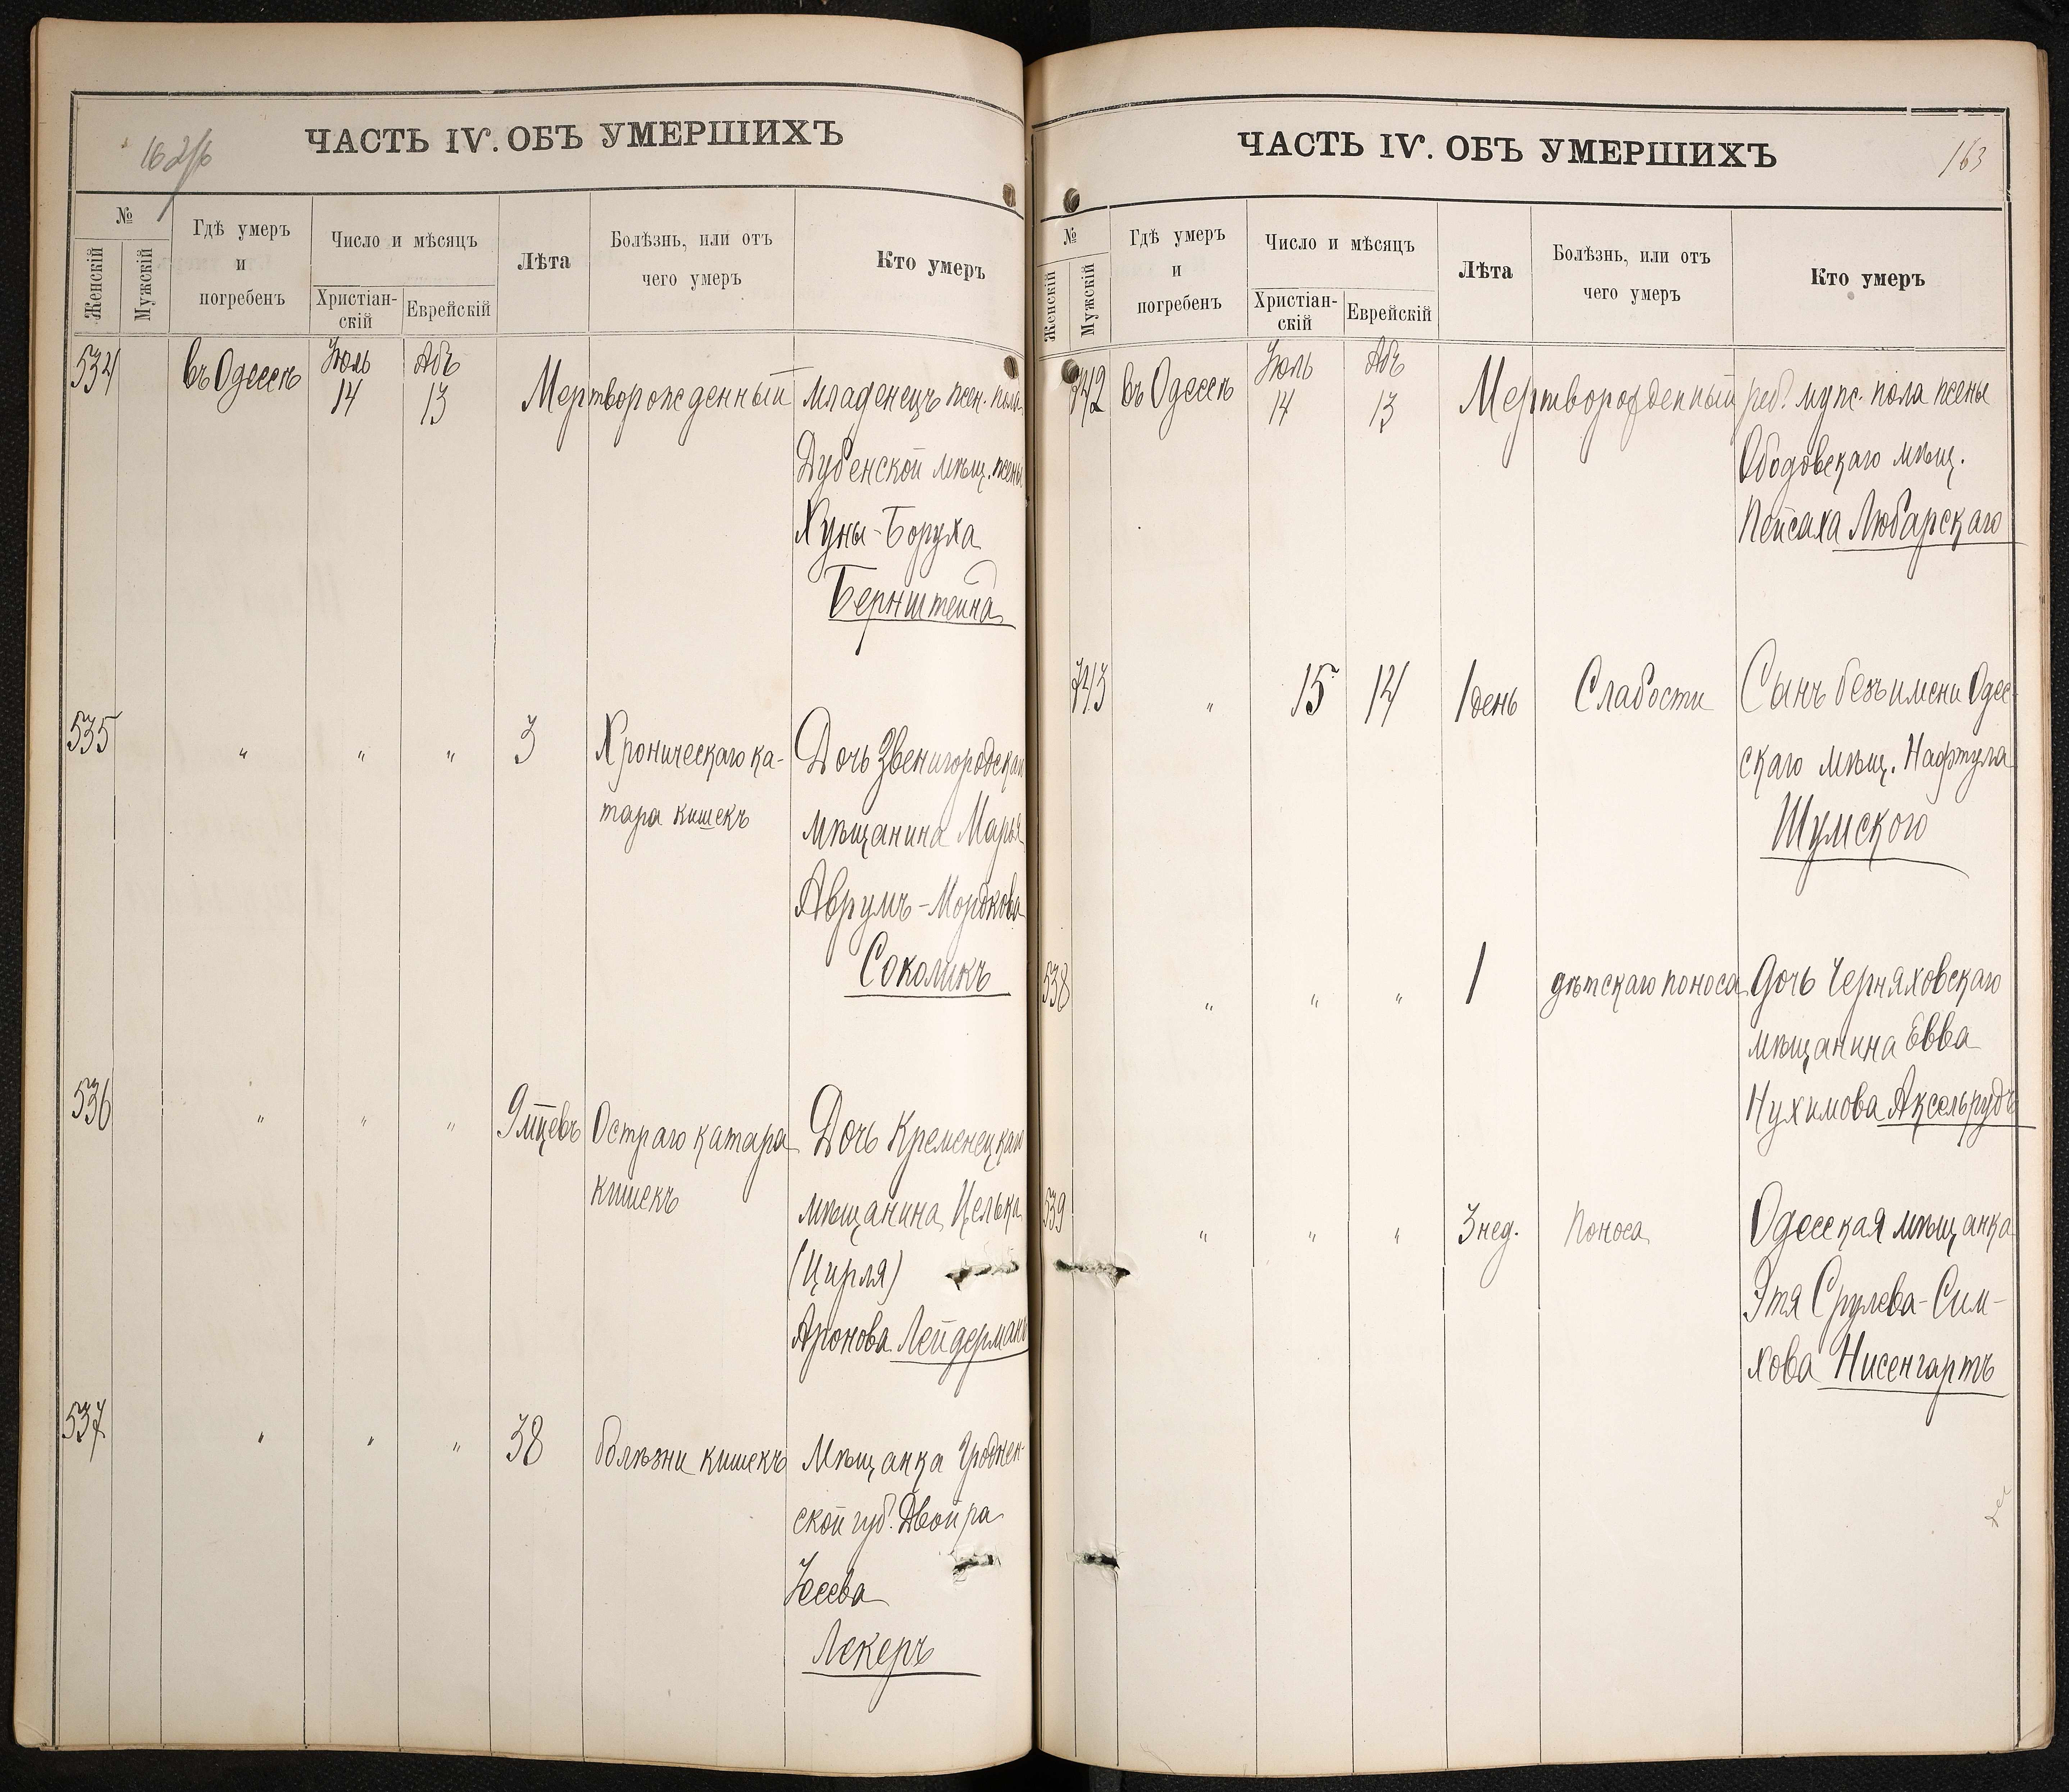 162/б
ЧАСТЬ IV. ОБЪ УМЕРШИХЪ
№
Женскій
Мужскій
Гдѣ умеръ
и
погребенъ
Число и мѣсяцъ
Христіан-
скій
Еврейскій
Лѣта
Болѣзнь, или отъ
чего умеръ
Кто умеръ
534 въ Одессѣ Іюль 14 Абъ 13 Мертворожденный младенецъ жен. пола
Дубенской мѣщ. жены
Хуны-Боруха
Бернштейна
535 " " " 3 Хроническаго ка- Дочь Звенигородскаго
тара кишекъ мѣщанина Марья
Аврумъ-Мордкова
Соколикъ
536 " " " 9 мцевъ Остраго катара Дочь Кременецкаго
кишекъ мѣщанина Целька
(Цирля)
Аронова Лейдерманъ
537 " " " 38 болѣзни кишекъ Мѣщанка Гроднен-
ской губ. Двойра
Іосева
Лекеръ
ЧАСТЬ IV. ОБЪ УМЕРШИХЪ
163
№
Женскій
Мужскій
Гдѣ умеръ
и
погребенъ
Число и мѣсяцъ
Христіан-
скій
Еврейскій
Лѣта
Болѣзнь, или отъ
чего умеръ
Кто умеръ
742 въ Одессѣ Іюль 14 Абъ 13 Мертворожденный реб. муж. пола жены
Ободовскаго мѣщ.
Пейсаха Любарскаго
743 " 15 14 1 день Слабости Сынъ безъ имени Одес-
скаго мѣщ. Нафтула
Шумского
538 " " " 1 дѣтскаго поноса Дочь Черняховскаго
мѣщанина Евва
Нухимова Аксельрудъ
539 " " " 3 нед. Поноса Одесская мѣщанка
Этя Срулева-Сим-
хова Нисенгартъ